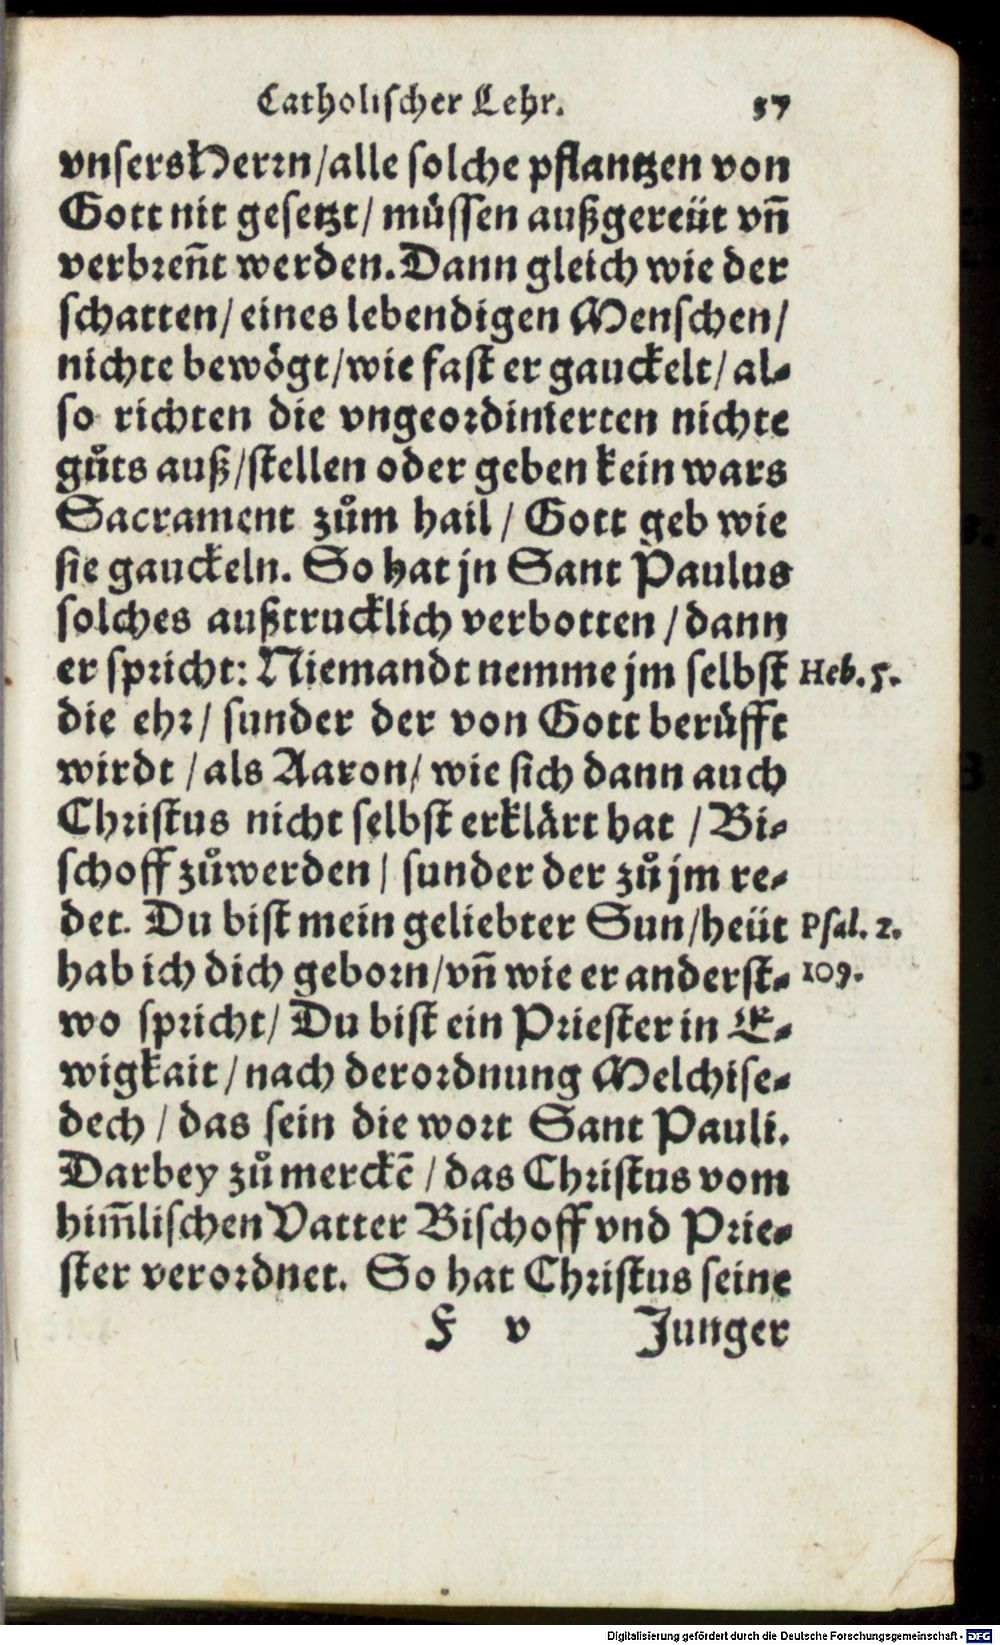 Catholischer Lehr. 57
vnsers Herrn/alle solche pflantzen von
Gott nit gesetzt/ müssen außgereüt vn̄
verbren̄t werden. Dann gleich wie der
schatten/ eines lebendigen Menschen/
nichts bewögt/wie fast er gauckelt/ al-
so richten die vngeordinierten nichts
gůts auß/stellen oder geben kein wars
Sacrament zům hail/ Gott geb wie
sie gauckeln. So hat jn Sant Paulus
solches außtrucklich verbotten/dann
er spricht: Niemandt nemme jm selbst Heb. 5.
die ehr/ sunder der von Gott berüfft
wirdt/als Aaron/ wie sich dann auch
Christus nicht selbst erklärt hat/Bi-
schoff zůwerden/ sunder der zů jm re-
det. Du bist mein geliebter Sun/heüt Psal. 2.
hab ich dich geborn/vn̄ wie er anderst- 109.
wo spricht/ Du bist ein Priester in E-
wigkait/nach der ordnung Melchise-
dech/das sein die wort Sant Pauli.
Darbey zů merckē/das Christus vom
him̄lischen Vatter Bischoff vnd Prie-
ster verordnet. So hat Christus seine
F v Junger
Digitalisierung gefördert durch die Deutsche Forschungsgemeinschaft - DFG